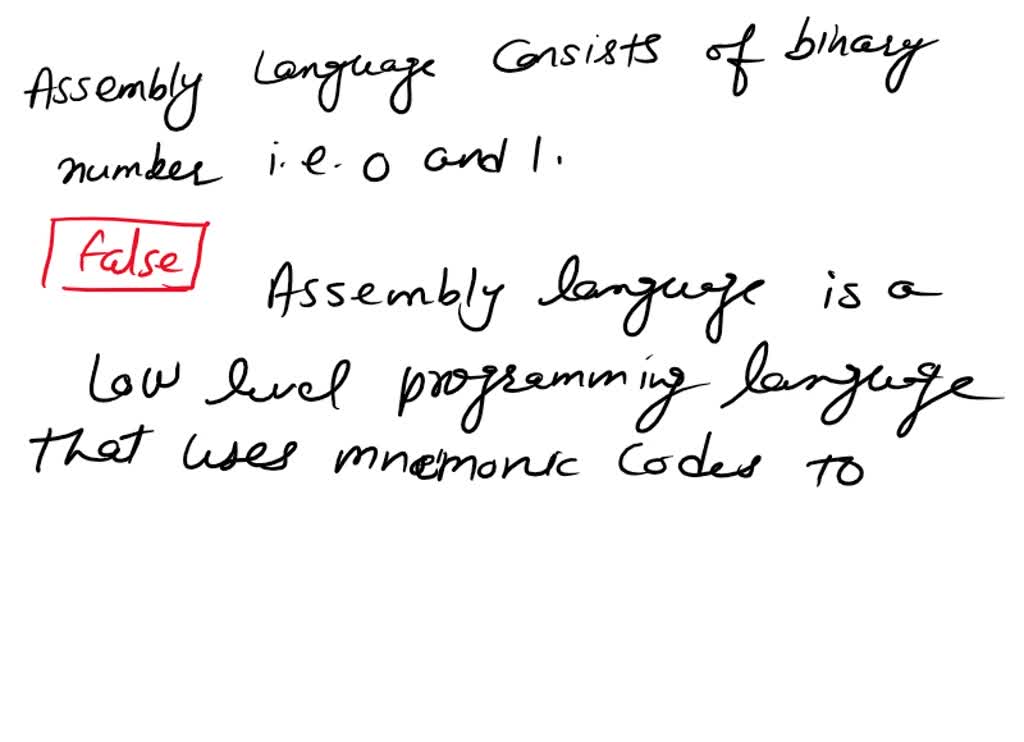 Assembly Language Consists of binary
number i.e. 0 and 1.
False
Assembly language is a
Low level programming language
that uses mnemonic codes to